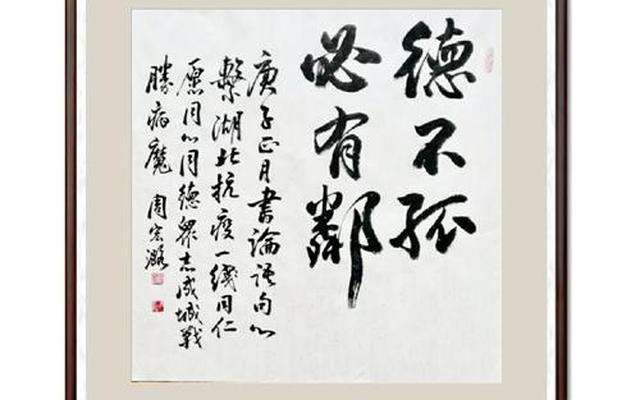 德不孤
必有鄰
庚子正月書論語句心
繫湖北抗疫一綫同仁
愿同心同德眾志成城戰
勝病魔 周宏璐